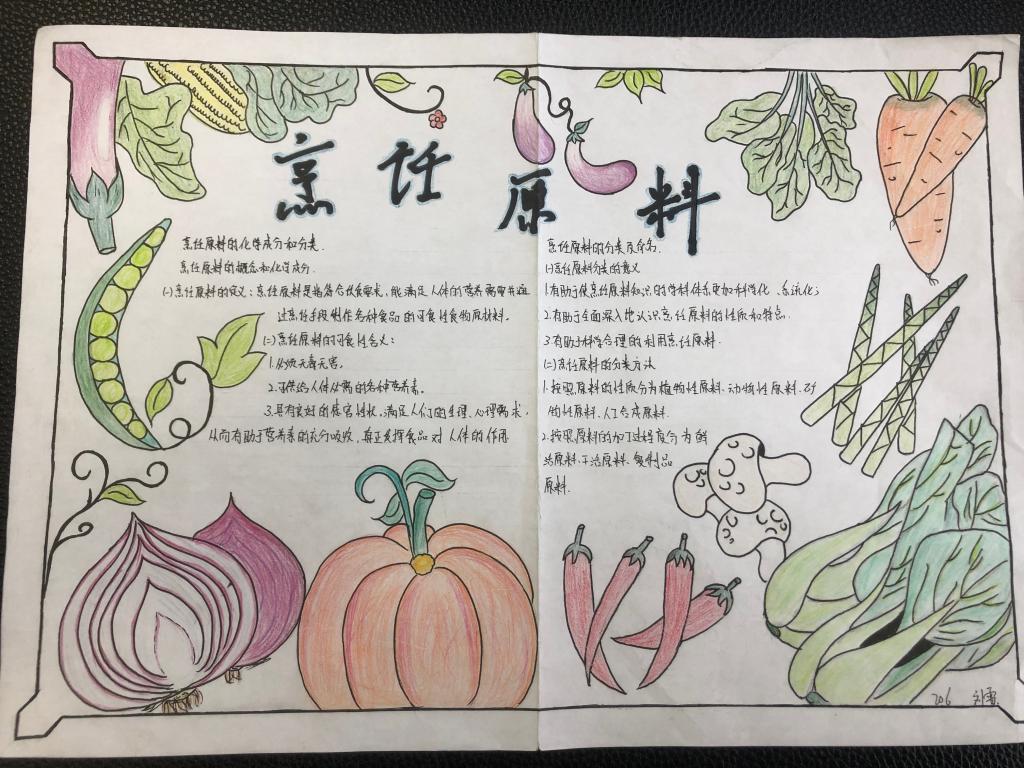 烹饪原料
烹饪原料的化学成分和分类.
烹饪原料的概念和化学成分.
(一)烹饪原料的定义：烹饪原料是指符合饮食要求，能满足人体的营养需要并通
过烹饪手段制作各种食品的可食性食物原材料。
(二)烹饪原料的可食性含义：
1.必须无毒无害。
2.可供给人体必需的各种营养素。
3.具有良好的感官性状，满足人们的生理、心理需求，
从而有助于营养素的充分吸收，真正发挥食品对人体的作用
烹饪原料的分类及命名.
(一)烹饪原料分类的意义
1.有助于使烹饪原料知识的学科体系更加科学化、系统化；
2.有助于全面深入地认识烹饪原料的性质和特点.
3.有助于科学合理的利用烹饪原料.
(二)烹饪原料的分类方法
1.按照原料的性质分为植物性原料、动物性原料、矿
物性原料、人工合成原料.
2.按照原料的加工过程度分为鲜
活原料、干活原料、复制品
原料.
206 刘雪